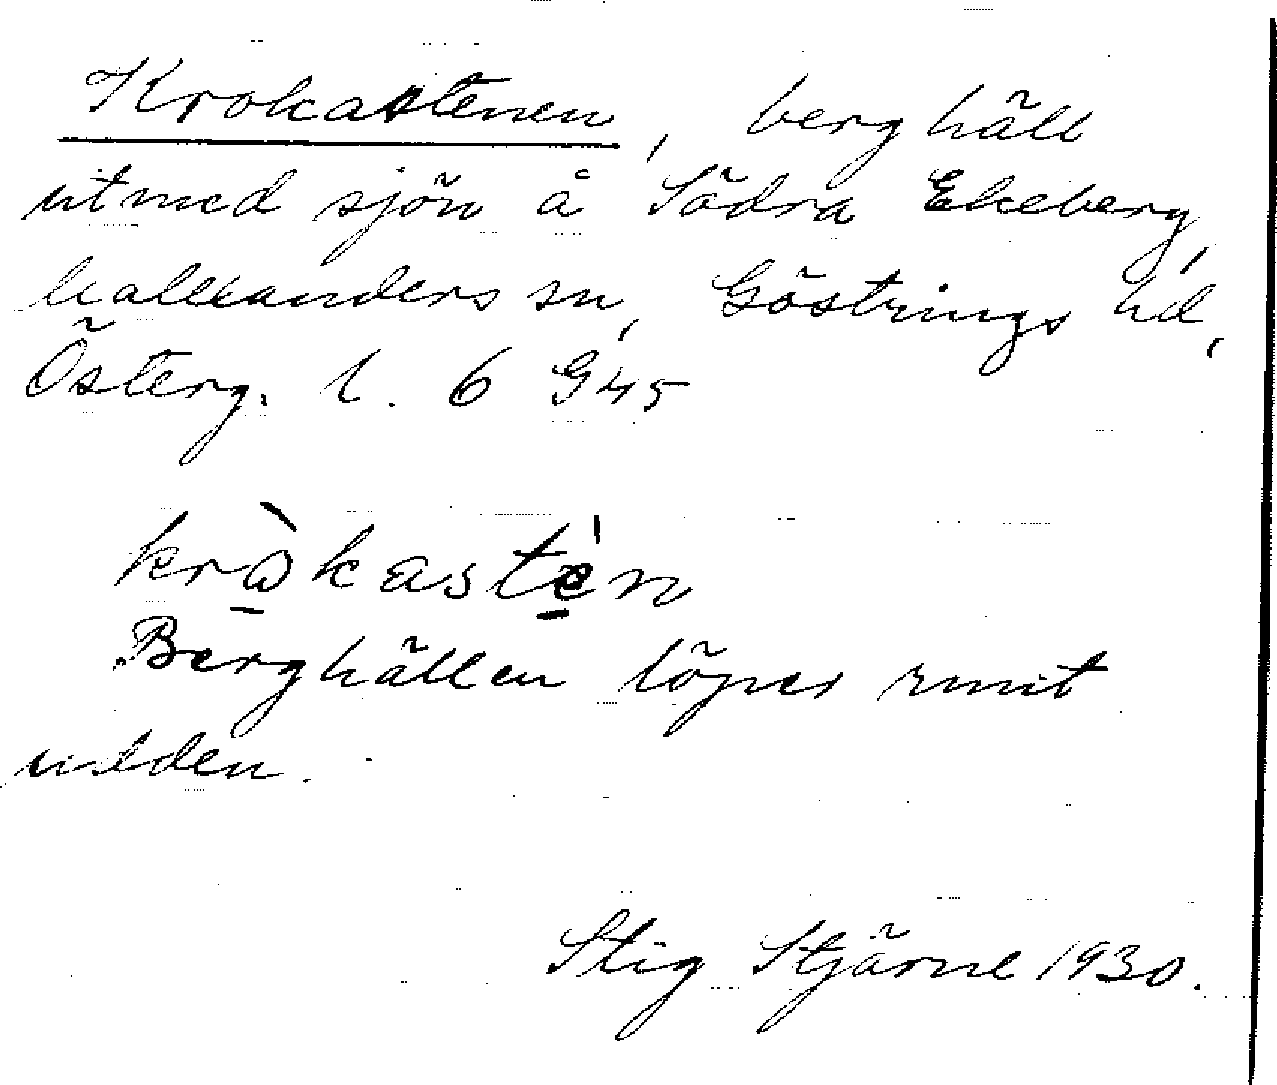 Krokastenen, berghäll
utmed sjön å Södra Ekeberg,
kalleanders sn, Göstrings hd,
Österg. l. 6 G45
kròkastèn
Berghällen löper runt
udden.
Stig Stjärne 1930.